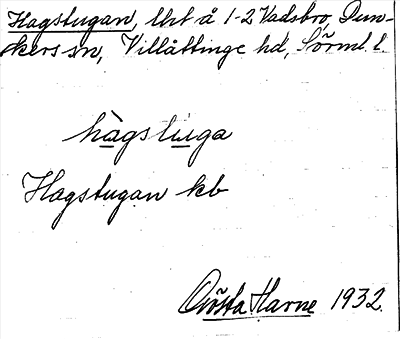 Hagstugan, lht å 1-2 Vadsbro, Dun-
kers sn, Villåttinge hd, Sörml. l.
hàgstuga
Hagstugan kb
Gösta Harne 1932.